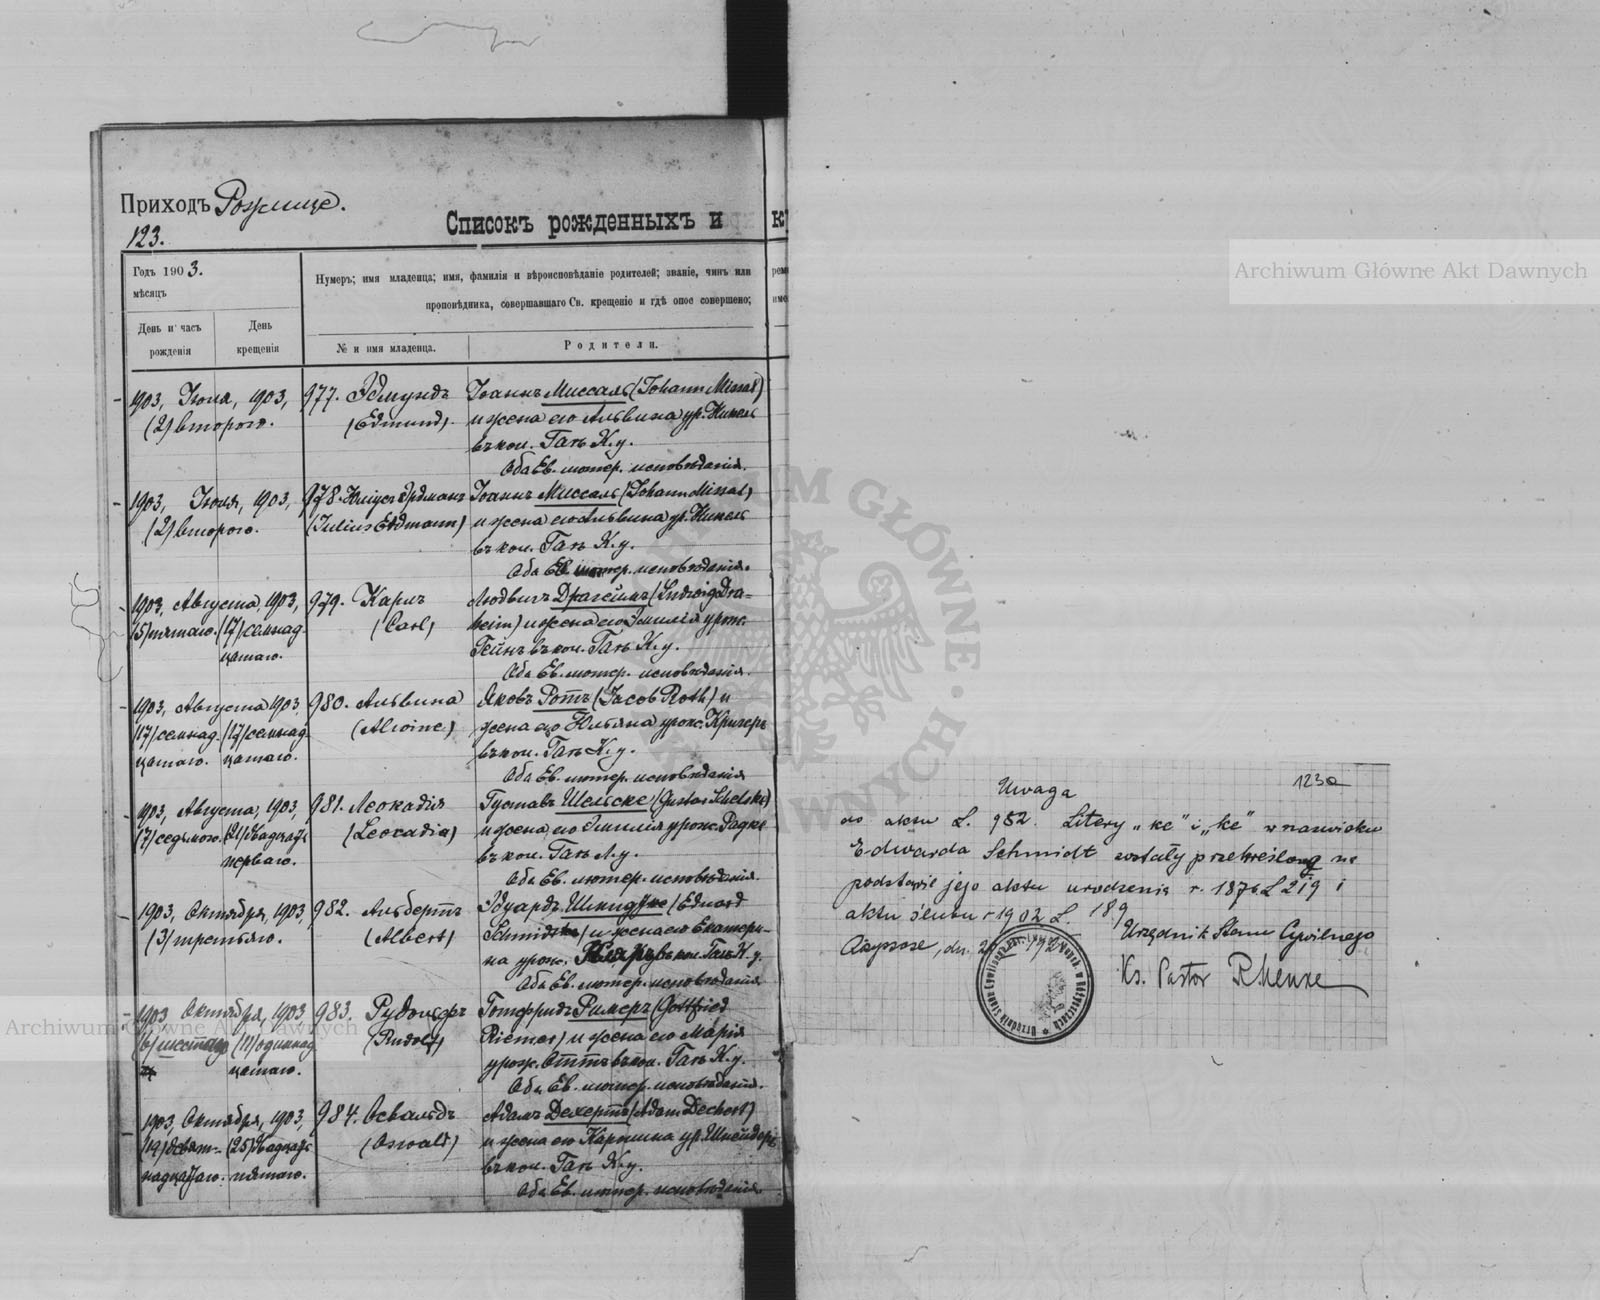 Приходъ Рожище.
123.
Списокъ рожденныхъ и
Годъ 1903.
мѣсяцъ
День и часъ рожденія
День крещенія
Нумеръ; имя младенца; имя, фамилія и вѣроисповѣданіе родителей; званіе, чинъ или
проповѣдника, совершавшаго Св. крещеніе и гдѣ оное совершено;
№ и имя младенца.
Родители.
1903, Іюля, 1903, 977. Эдмундъ Іоаннъ Миссаль (Johann Missal)
(2) второго. (Edmund). и жена его Альвина ур. Никель
въ кол. Гать К. у.
Оба Ев. лютер. исповѣданія.
1903, Іюля, 1903, 978. Юліусъ Эрдманъ Іоаннъ Миссаль (Johann Missal)
(2) второго. (Julius Erdmann) и жена его Альвина ур. Никель
въ кол. Гать К. у.
Оба Ев. лютер. исповѣданія.
1903, Августа, 1903, 979. Карлъ Людвигъ Драгеймъ (Ludwig Dra-
(5) пятаго. (17) семнад- (Carl) heim) и жена его Эмилія урож.
цатаго. Гейнъ въ кол. Гать К. у.
Оба Ев. лютер. исповѣданія.
1903, Августа 1903, 980. Альвина Яковъ Ротъ (Jacob Roth) и
(17) семнад- (17) семнад- (Alwine) жена его Юльяна урож. Кригеръ
цатаго. цатаго. въ кол. Гать К. у.
Оба Ев. лютер. исповѣданія
1903, Августа, 1903, 981. Леокадія Густавъ Шельске (Gustav Schelske)
(7) седьмого. (21) двадцать (Leocadia) и жена его Эмилія урож. Радке
перваго. въ кол. Гать Л. у.
Оба Ев. лютер. исповѣданія.
1903, Октября, 1903, 982. Альбертъ Эдуардъ (Eduard
(3) третьяго. (Albert) Schmidt) и жена его Екатери-
на урож. въ кол. Гать К. у.
Оба Ев. лютер. исповѣданія
1903 Октября, 1903 983. Рудольфъ Готфридъ Римеръ (Gottfried
(6) шестаго (11) одиннад- (Rudolf) Riemer) и жена его Марія
цатаго. урож. Оттъ въ кол. Гать К. у.
Оба Ев. лютер. исповѣданія.
1903, Октября, 1903, 984. Освальдъ Адамъ Дехертъ (Adam Dechert)
(19) девят- (25) двадцать (Oswald) и жена его Каролина ур. Шнейдеръ
надцатаго. пятаго. въ кол. Гать К. у.
Оба Ев. лютер. исповѣданія.
123a
Uwaga
do aktu L. 982. Litery „ке” i „ke” w nazwisku
Edwarda Schmidt zostały przekreślone na
podstawie jego aktu urodzenia r. 1876 L 219 i
aktu ślubu r 1902 L. 189
Rożyszcze, dn.
Urzędnik Stanu Cywilnego
Ks. Pastor
Archiwum Główne Akt Dawnych
Archiwum Główne Akt Dawnych